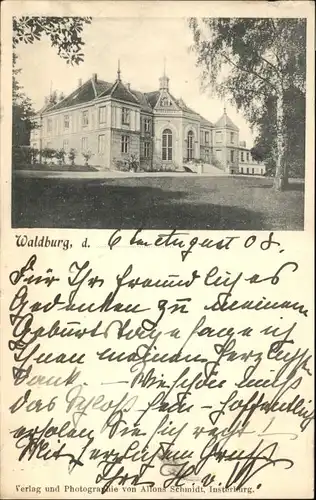 Waldburg, d. 6ten August 08.
Für Ihr freundliches
Gedenken zu meinem
Geburtstage sage ich
Ihnen meinen herzlichsten
Dank. — Wie schön muß
das Schloß sein – hoffentlich
erholen Sie sich recht!
Mit herzlichem Gruß
Ihre H. v. W.
Verlag und Photographie von Alfons Schmidt, Insterburg.